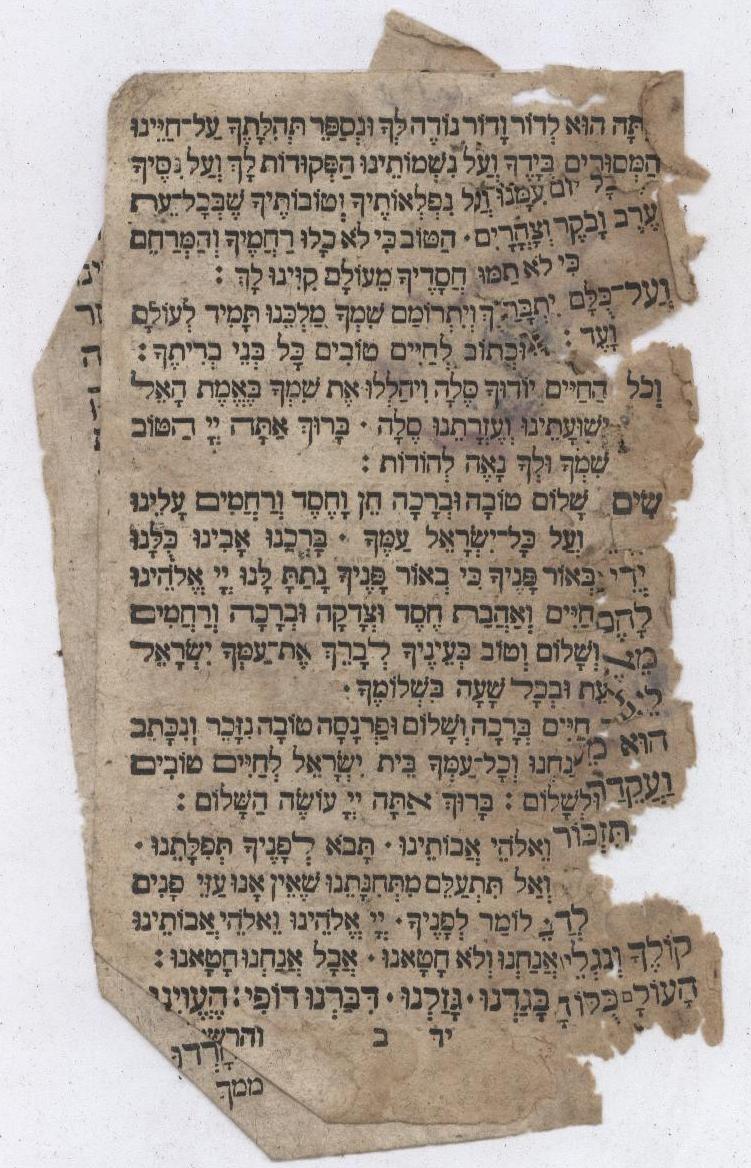 תָּה הוּא לְדוֹר וָדוֹר נוֹדֶה לְּךָ וּנְסַפֵּר תְּהִלָּתֶךָ עַל־חַיֵּינוּ
הַמְּסוּרִים בְּיָדֶךָ וְעַל נִשְׁמוֹתֵינוּ הַפְּקוּדוֹת לָךְ וְעַל נִסֶּיךָ
כָל יוֹם עִמָּנוּ וְעַל נִפְלְאוֹתֶיךָ וְטוֹבוֹתֶיךָ שֶׁבְּכָל־עֵת
עֶרֶב וָבֹקֶר וְצָהֳרָיִם· הַטּוֹב כִּי לֹא כָלוּ רַחֲמֶיךָ וְהַמְּרַחֵם
כִּי לֹא תַמּוּ חֲסָדֶיךָ מֵעוֹלָם קִוִּינוּ לָךְ :
וְעַל־כֻּלָּם יִתְבָּרַךְ וְיִתְרוֹמַם שִׁמְךָ מַלְכֵּנוּ תָּמִיד לְעוֹלָם
וָעֶד : וּכְתוֹב לְחַיִּים טוֹבִים כָּל בְּנֵי בְרִיתֶךָ :
וְכֹל הַחַיִּים יוֹדוּךָ סֶּלָה וִיהַלְלוּ אֶת שִׁמְךָ בֶּאֱמֶת הָאֵל
יְשׁוּעָתֵינוּ וְעֶזְרָתֵנוּ סֶלָה · בָּרוּךְ אַתָּה יְיָ הַטּוֹב
שִׁמְךָ וּלְךָ נָאֶה לְהוֹדוֹת :
שִׂים שָׁלוֹם טוֹבָה וּבְרָכָה חֵן וָחֶסֶד וְרַחֲמִים עָלֵינוּ
וְעַל כָּל־יִשְׂרָאֵל עַמֶּךָ · בָּרְכֵנוּ אָבִינוּ כֻּלָּנוּ
יְדֵי בְּאוֹר פָּנֶיךָ כִּי בְאוֹר פָּנֶיךָ נָתַתָּ לָּנוּ יְיָ אֱלֹהֵינוּ
לָהֶם חַיִּים וְאַהֲבַת חֶסֶד וּצְדָקָה וּבְרָכָה וְרַחֲמִים
וְשָׁלוֹם וְטוֹב בְּעֵינֶיךָ לְבָרֵךְ אֶת־עַמְּךָ יִשְׂרָאֵל
עֵת וּבְכָל שָׁעָה בִּשְׁלוֹמֶךָ·
חַיִּים בְּרָכָה וְשָׁלוֹם וּפַרְנָסָה טוֹבָה נִזָּכֵר וְנִכָּתֵב
הוּא נַחְנוּ וְכָל־עַמְּךָ בֵּית יִשְׂרָאֵל לְחַיִּים טוֹבִים
וַעֲקֵדַת וּלְשָׁלוֹם : בָּרוּךְ אַתָּה יְיָ עוֹשֶׂה הַשָּׁלוֹם :
תִּזְכּוֹר וֵאלֹהֵי אֲבוֹתֵינוּ · תָּבֹא לְפָנֶיךָ תְּפִלָּתֵנוּ ·
וְאַל תִּתְעַלַּם מִתְּחִנָּתֵנוּ שֶׁאֵין אָנוּ עַזֵּי פָנִים
לוֹמַר לְפָנֶיךָ· יְיָ אֱלֹהֵינוּ וֵאלֹהֵי אֲבוֹתֵינוּ
קוֹלֶךָ וְנִגְלֵי אֲנַחְנוּ וְלֹא חָטָאנוּ · אֲבָל אֲנַחְנוּ חָטָאנוּ :
הָעוֹלָם בָּגַדְנוּ · גָּזַלְנוּ · דִּבַּרְנוּ דוֹפִי : הֶעֱוִינוּ
יד ב והרשענו
ממך